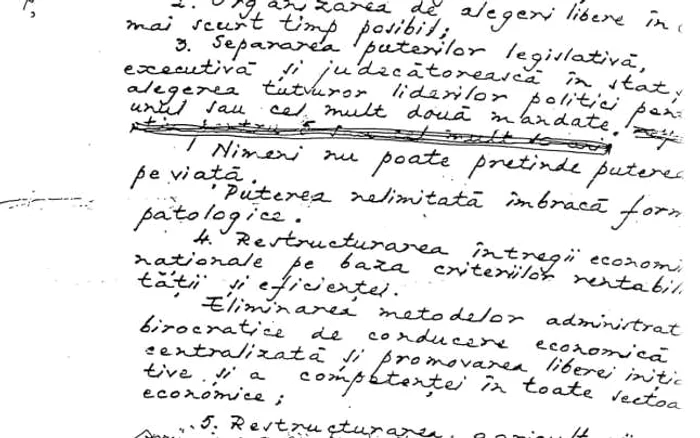 2. Organizarea de alegeri libere în
mai scurt timp posibil;
3. Separarea puterilor legislativă,
executivă și judecătorească în stat,
alegerea tuturor liderilor politici pen
unul sau cel mult două mandate.
Nimeni nu poate pretinde puterea
pe viață.
Puterea nelimitată îmbracă form
patologice.
4. Restructurarea întregii economi
naționale pe baza criteriilor rentabil
tății și eficienței.
Eliminarea metodelor administrat
birocratice de conducere economică
centralizată și promovarea liberei iniția
tive și a competenței în toate sectoa
economice;
5. Restructurarea